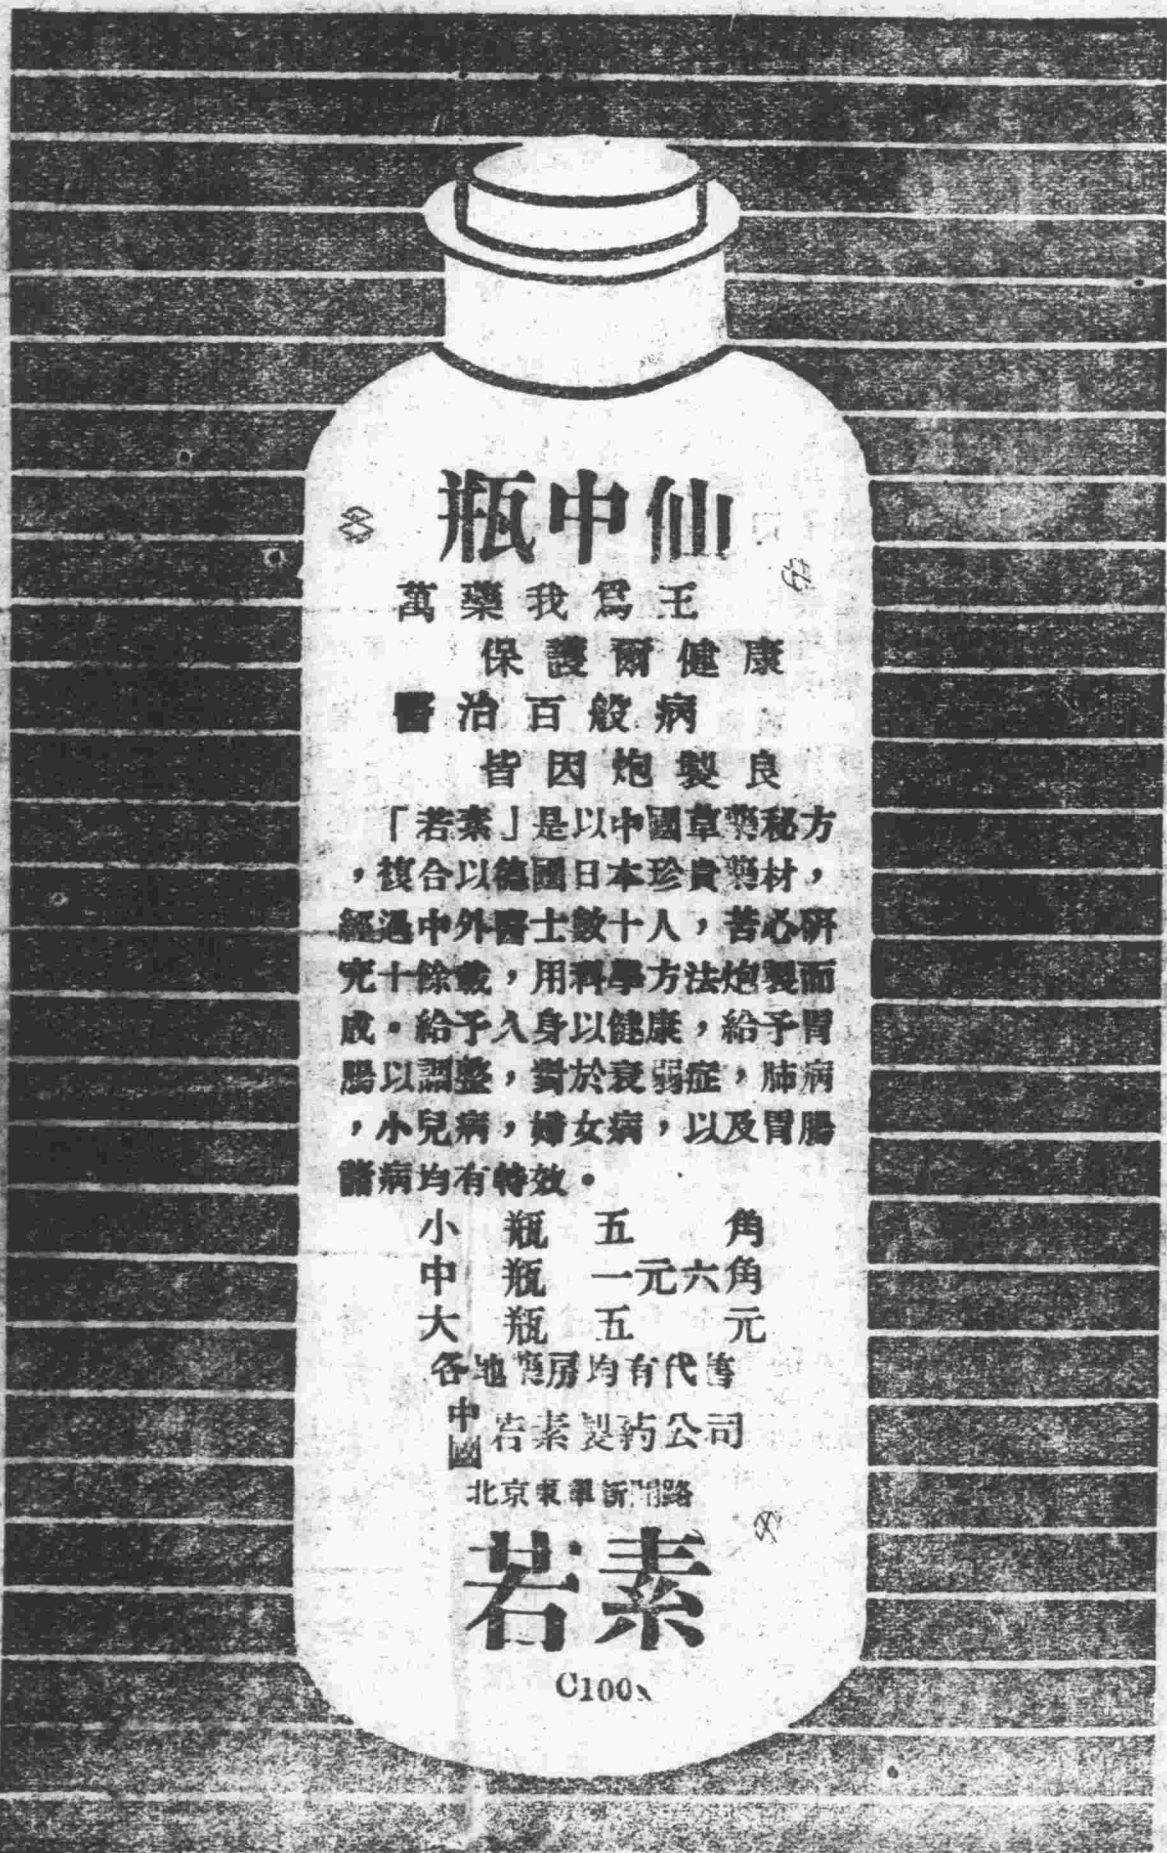 瓶中仙
萬藥我爲王
保護爾健康
醫治百般病
皆因炮製良
「若素」是以中國草藥秘方
，複合以德國日本珍貴藥材，
經過中外醫士數十人，苦心研
究十餘載，用科學方法炮製而
成。給予人身以健康，給予胃
腸以調整，對於衰弱症，肺病
，小兒病，婦女病，以及胃腸
諸病均有特效。
小瓶五角
中瓶一元六角
大瓶五元
各地藥房均有代售
中國若素製葯公司
北京東單新開路
若素
C100